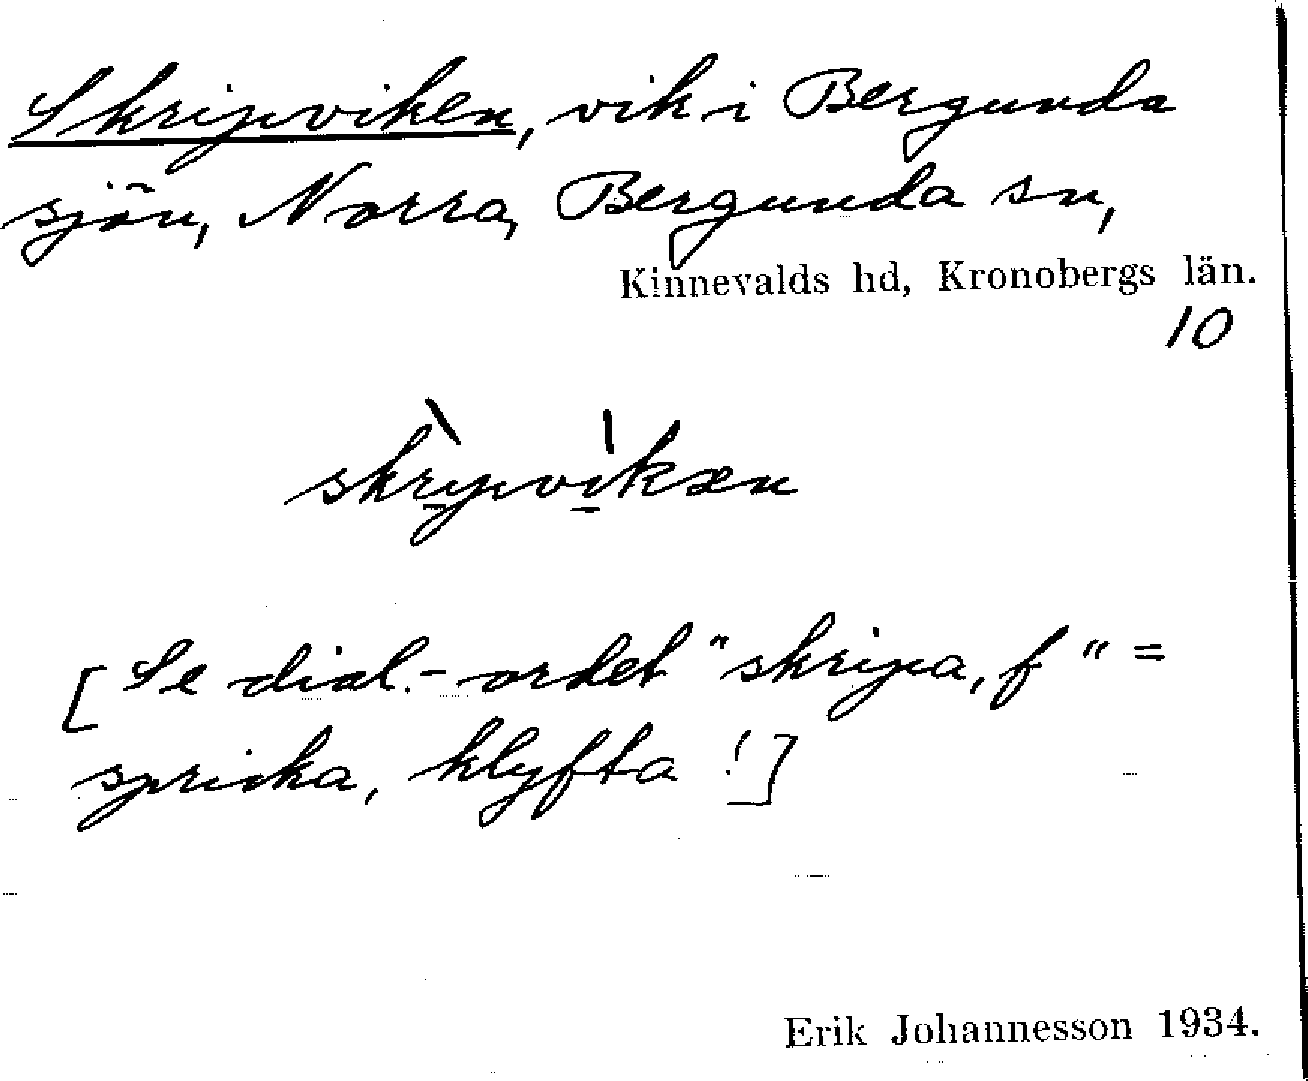 Skripviken, vik i Bergunda
sjön, Norra Bergunda sn,
Kinnevalds hd, Kronobergs län.
10
skrìpvíkæn
[Se dial.-ordet "skripa, f" =
spricka, klyfta!]
Erik Johannesson 1934.